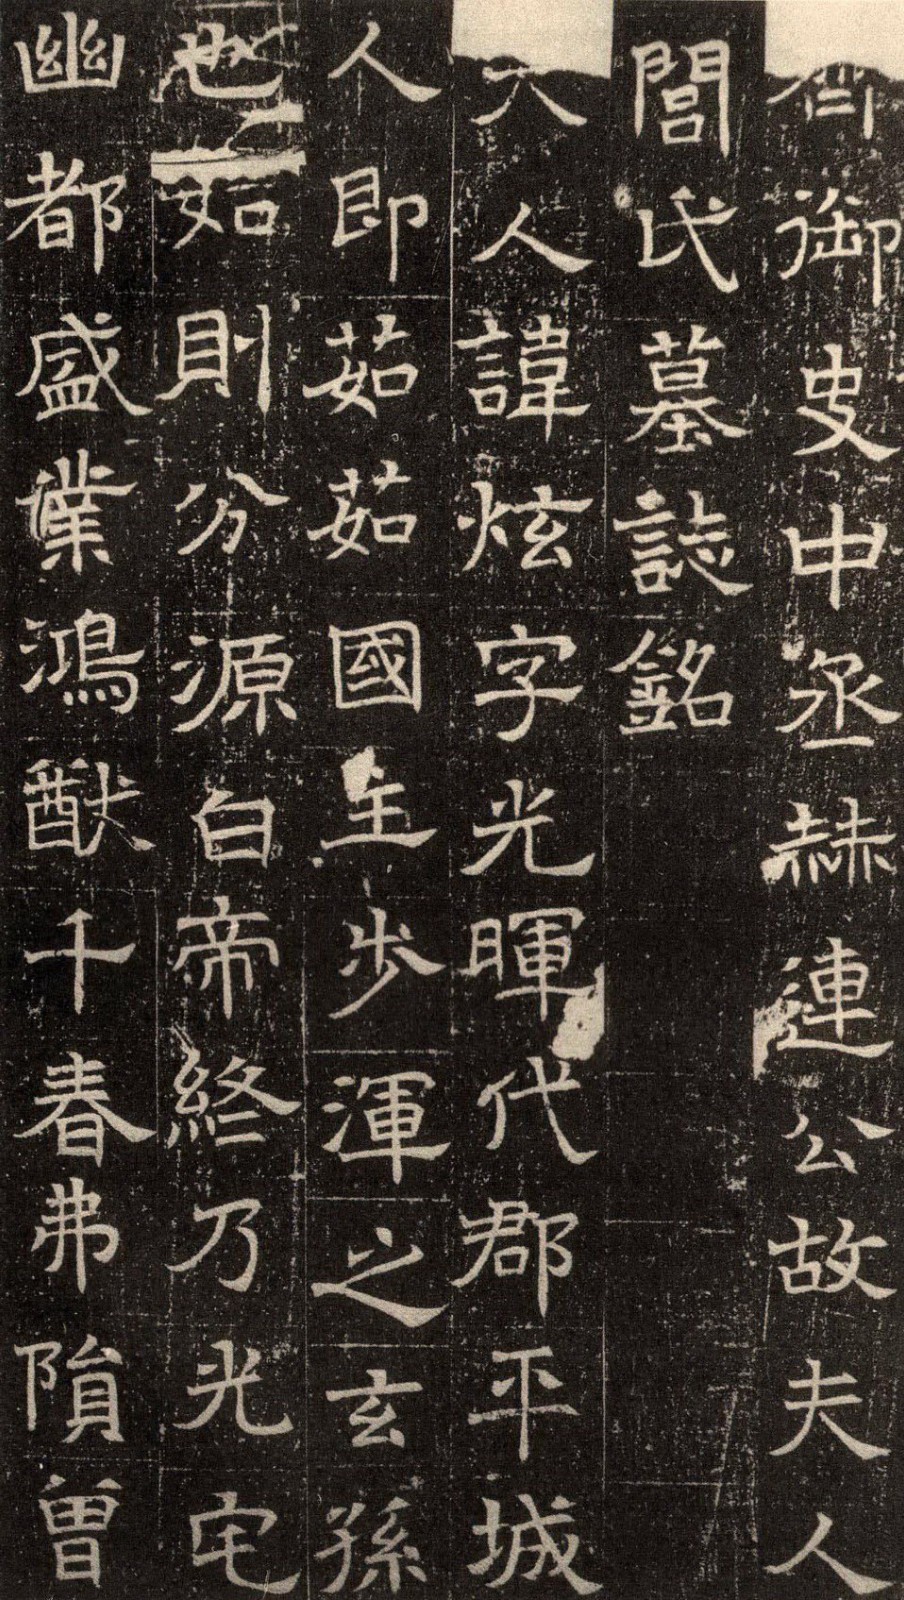 齊御史中丞赫連公故夫人
閭氏墓誌銘
夫人諱炫字光暉代郡平城
人即茹茹國主步渾之玄孫
也如則分源白帝終乃光宅
幽都盛業鴻猷千春弗隕曾